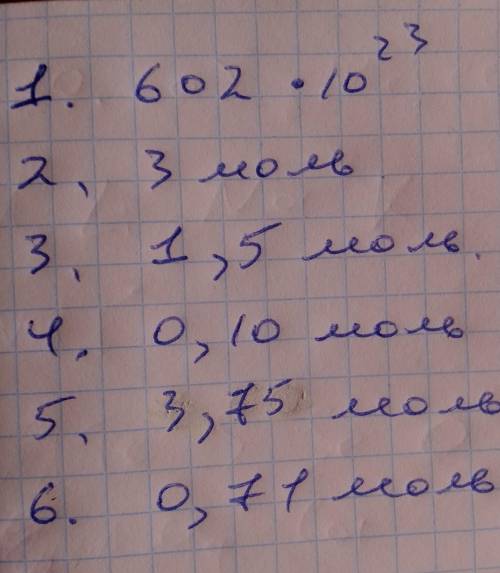 1. 602 • 10²³
2. 3 моль
3. 1,5 моль.
4. 0,10 моль
5. 3,75 моль
6. 0,71 моль